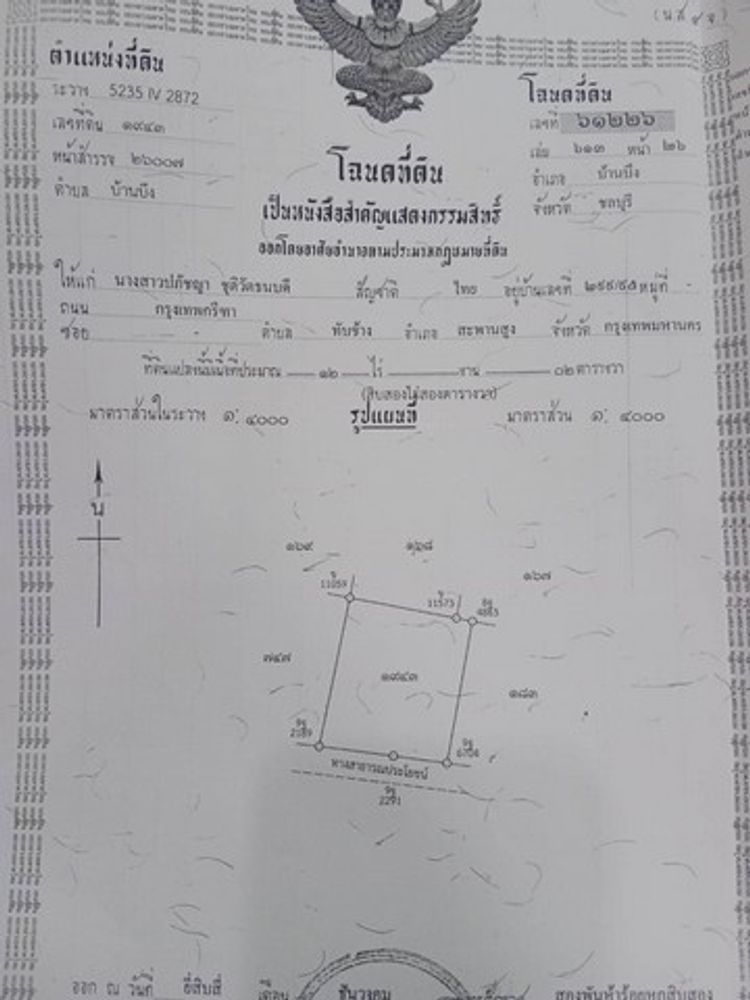 (น.ส. ๔ จ)
ตำแหน่งที่ดิน
ระวาง 5235 IV 2872
เลขที่ดิน ๑๙๔๓
หน้าสำรวจ ๒๖๐๐๗
ตำบล บ้านบึง
โฉนดที่ดิน
เลขที่ ๖๑๒๒๖
เล่ม ๖๑๓ หน้า ๒๖
อำเภอ บ้านบึง
จังหวัด ชลบุรี
โฉนดที่ดิน
เป็นหนังสือสำคัญแสดงกรรมสิทธิ์
ออกโดยอาศัยอำนาจตามประมวลกฎหมายที่ดิน
ให้แก่ นางสาวปภัชญา ชุติวัตธนบดี สัญชาติ ไทย อยู่บ้านเลขที่ ๒๙๙/๔๕ หมู่ที่ -
ถนน กรุงเทพกรีฑา
ซอย - ตำบล ทับช้าง อำเภอ สะพานสูง จังหวัด กรุงเทพมหานคร
ที่ดินแปลงนี้มีเนื้อที่ประมาณ ๑๒ ไร่ งาน ๐๒ ตารางวา
(สิบสองไร่สองตารางวา)
มาตราส่วนในระวาง ๑: ๔๐๐๐ รูปแผนที่ มาตราส่วน ๑: ๔๐๐๐
น
๑๖๙ ๑๖๘ ๑๖๗
11059 11573
๗๔๗ ๑๙๔๓ ๑๘๓
2189
ทางสาธารณประโยชน์
2291
ออก ณ วันที่ ยี่สิบสี่ เดือน ธันวาคม สองพันห้าร้อยหกสิบสอง